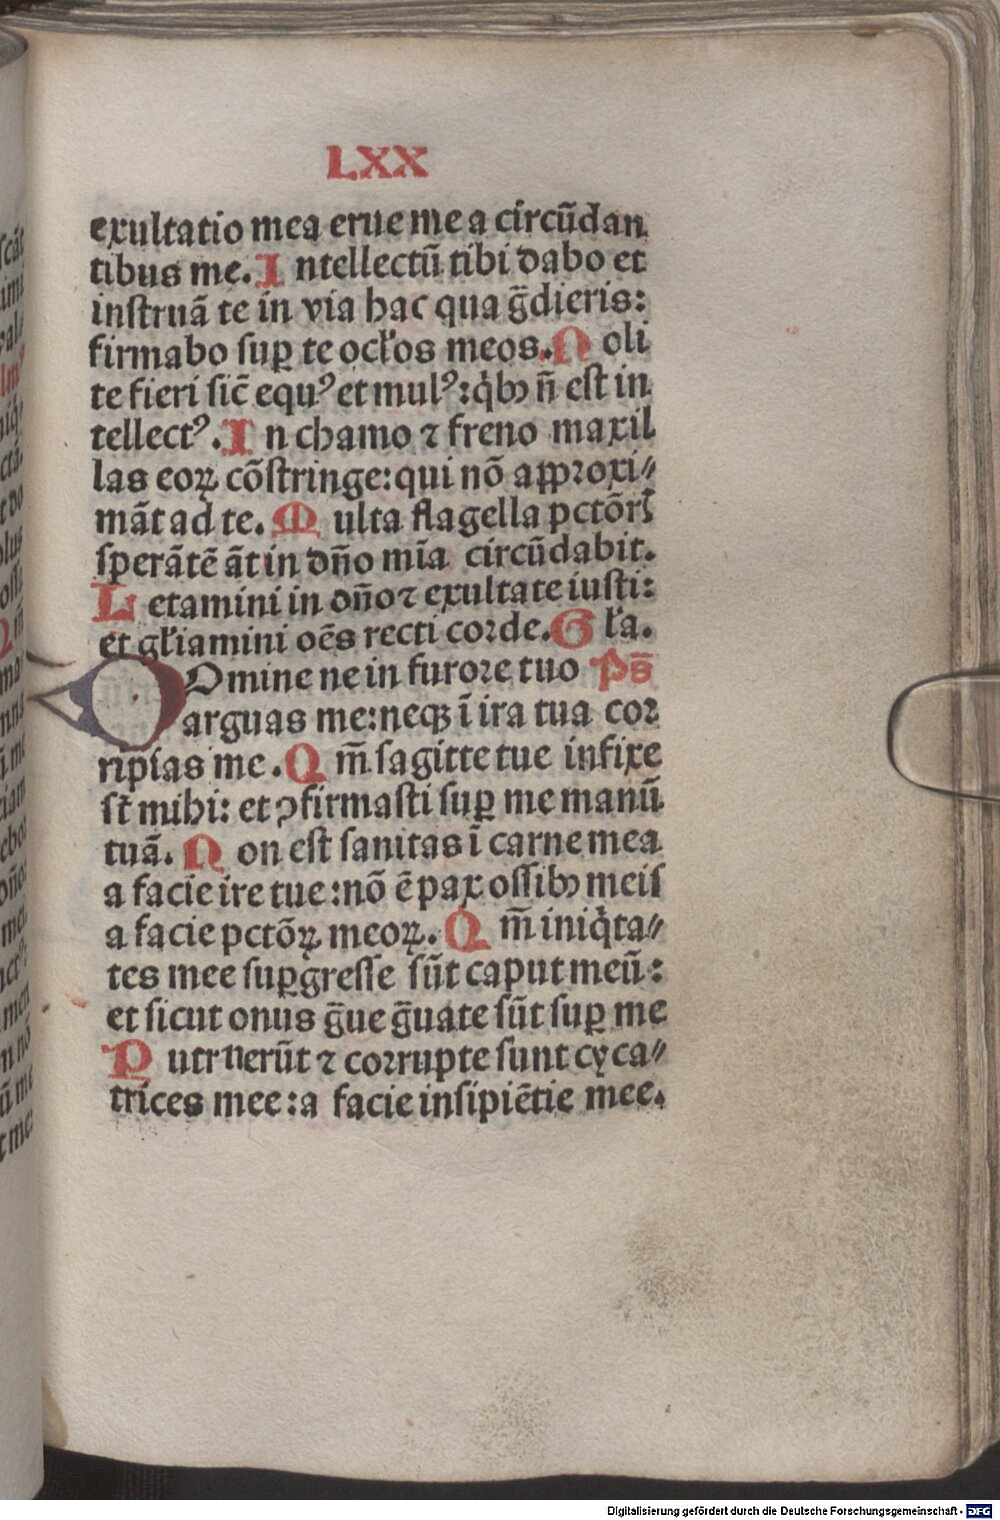 LXX
exultatio mea erue me a circūdan
tibus me. Intellectū tibi dabo et
instruā te in via hac qua g̃dieris:
firmabo suꝑ te ocłos meos. Noli
te fieri sic̄ equꝰ et mulꝰ: q̇bꝫ ñ est in
tellectꝰ. In chamo ⁊ freno maxil
las eoꝝ cōstringe: qui nō approxi⸗
māt ad te. Multa flagella pctōrꝭ
sperātē āt in dño mīa circūdabit.
Letamini in dño ⁊ exultate iusti:
et głiamini oēs recti corde. Gła.
DOmine ne in furore tuo Ps̄
arguas me: neqꝫ ī ira tua cor
ripias me. Qm̄ sagitte tue infixe
st̄ mihi: et ꝯfirmasti suꝑ me manū
tuā. Non est sanitas ī carne mea
a facie ire tue: nō ē pax ossibꝫ meis
a facie pctōꝝ meoꝝ. Qm̄ iniq̇ta⸗
tes mee suꝑgresse sūt caput meū:
et sicut onus g̃ue g̃uate sūt suꝑ me
Putruerūt ⁊ corrupte sunt cyca⸗
trices mee: a facie insipiētie mee.
Digitalisierung gefördert durch die Deutsche Forschungsgemeinschaft - DFG